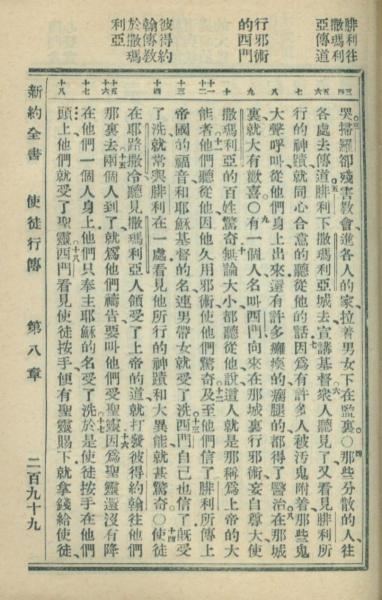 腓利往
撒瑪利
亞傳道
行邪術
的西門
彼得約
翰傳教
於撒瑪
利亞
三 四
五 六
七
八
九
十
十一 十二
十三
十四
十五 十六
十七
十八
哭、掃羅卻殘害教會、進各人的家、拉着男女下在監裏○那些分散的人、往
各處去傳道、腓利下撒瑪利亞城去、宣講基督、衆人聽見了、又看見腓利所
行的神蹟、就同心合意的聽從他的話、因爲有許多人被汚鬼附着、那些鬼
大聲呼叫、從他們身上出來、還有許多癱瘓的、瘸腿的、都得了醫治、在那城
裏、就大有歡喜○有一個人、名叫西門、向來在那城裏行邪術、妄自尊大、使
撒瑪利亞的百姓驚奇、無論大小都聽從他、說這人就是那稱爲上帝的大
能者、他們聽從他、因他久用邪術、使他們驚奇、及至他們信了腓利所傳上
帝國的福音、和耶穌基督的名、連男帶女就受了洗、西門自己也信了、旣受
了洗、就常與腓利在一處、看見他所行的神蹟和大異能、就甚驚奇○使徒
在耶路撒冷聽見撒瑪利亞人領受了上帝的道、就打發彼得約翰往他們
那裏去、兩個人到了、就爲他們禱告、要叫他們受聖靈、因爲聖靈還沒有降
在他們一個人身上、他們只奉主耶穌的名受了洗、於是使徒按手在他們
頭上、他們就受了聖靈、西門看見使徒按手、便有聖靈賜下、就拿錢給使徒、
新約全書　使徒行傳　第八章　二百九十九